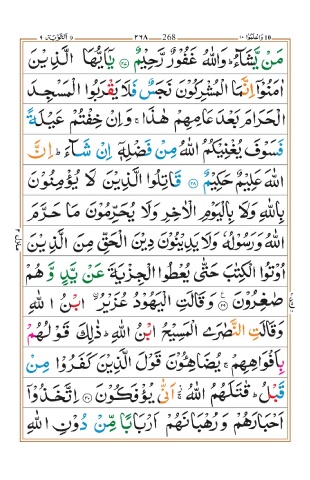 التوبة ٩ ٢٦٨ 268 واعلموا ١٠
مَنْ يَّشَآءُ ؕ وَاللّٰهُ غَفُوْرٌ رَّحِيْمٌ ﴿۲۷﴾ يٰۤاَيُّهَا الَّذِيْنَ
اٰمَنُوْۤا اِنَّمَا الْمُشْرِكُوْنَ نَجَسٌ فَلَا يَقْرَبُوا الْمَسْجِدَ
الْحَرَامَ بَعْدَ عَامِهِمْ هٰذَا ۚ وَاِنْ خِفْتُمْ عَيْلَةً
فَسَوْفَ يُغْنِيْكُمُ اللّٰهُ مِنْ فَضْلِهٖۤ اِنْ شَآءَ ؕ اِنَّ
اللّٰهَ عَلِيْمٌ حَكِيْمٌ ﴿۲۸﴾ قَاتِلُوا الَّذِيْنَ لَا يُؤْمِنُوْنَ
بِاللّٰهِ وَلَا بِالْيَوْمِ الْاٰخِرِ وَلَا يُحَرِّمُوْنَ مَا حَرَّمَ
اللّٰهُ وَرَسُوْلُهٗ وَلَا يَدِيْنُوْنَ دِيْنَ الْحَقِّ مِنَ الَّذِيْنَ
اُوْتُوا الْكِتٰبَ حَتّٰى يُعْطُوا الْجِزْيَةَ عَنْ يَّدٍ وَّ هُمْ
صٰغِرُوْنَ ﴿۲۹﴾ وَقَالَتِ الْيَهُوْدُ عُزَيْرُ اۨبْنُ اللّٰهِ
وَقَالَتِ النَّصٰرَى الْمَسِيْحُ ابْنُ اللّٰهِ ؕ ذٰلِكَ قَوْلُهُمْ
بِاَفْوَاهِهِمْ ۚ يُضَاهِـُٔوْنَ قَوْلَ الَّذِيْنَ كَفَرُوْا مِنْ
قَبْلُ ؕ قٰتَلَهُمُ اللّٰهُ ۚ اَنّٰى يُؤْفَكُوْنَ ﴿۳۰﴾ اِتَّخَذُوْۤا
اَحْبَارَهُمْ وَرُهْبَانَهُمْ اَرْبَابًا مِّنْ دُوْنِ اللّٰهِ